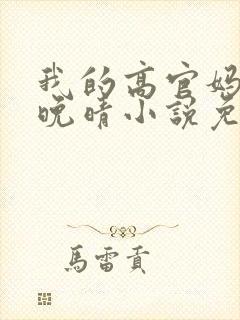 我的高官妈
晚晴小说免
馬雷貢